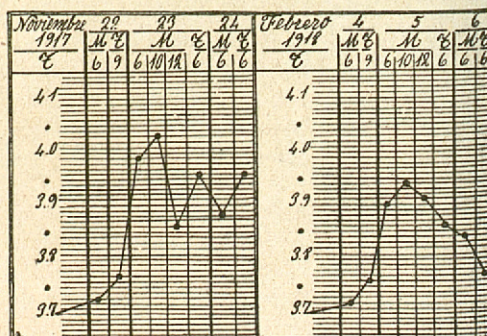 Noviembre 22 23 24
1917 M T M T M T
T 6 9 6 10 12 6 6 6
4.1
4.0
3.9
3.8
3.7
Febrero 4 5 6
1918 M T M T M T
T 6 9 6 10 12 6 6 6
4.1
4.0
3.9
3.8
3.7